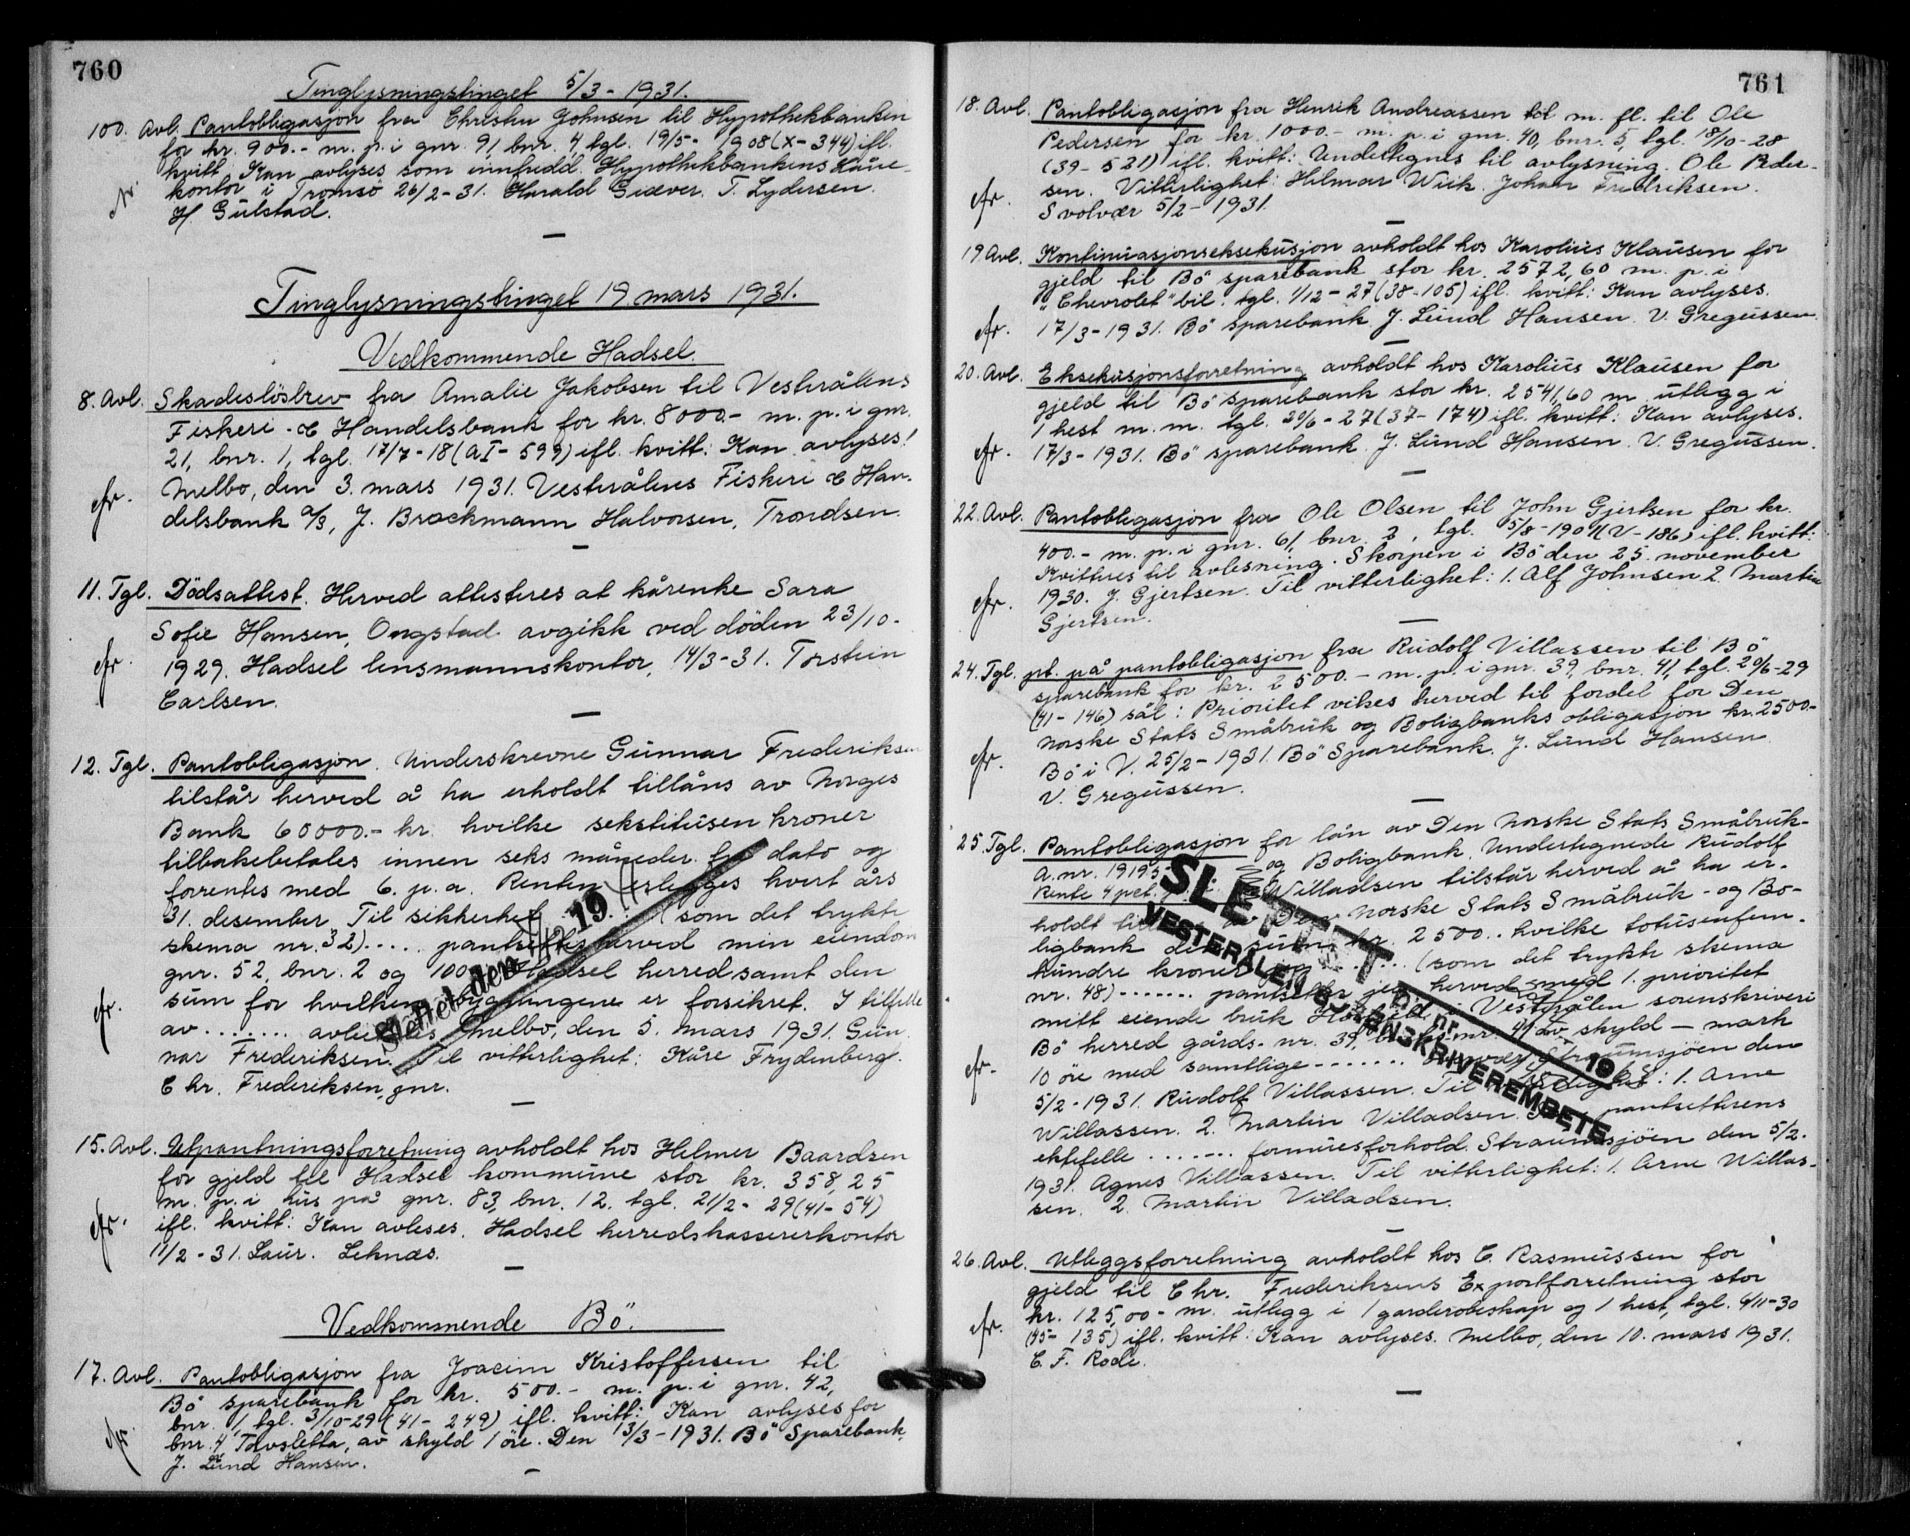 760
Tinglysningstinget 5/3-1931.
100. Avl. Pantobligasjon fra Christen Johnsen til Hypothekbanken
for kr. 900.- m. p. i gnr. 91, bnr. 4 tgl. 19/5-1908 (X-344) ifl.
kvitt. Kan avlyses som innfridd. Hypothekbankens Låne-
kontor i Tromsö 26/2-31. Harald Giæver. T. Lydersen.
H. Gulstad.
Tinglysningstinget 19 mars 1931.
Vedkommende Hadsel.
8. Avl. Skadeslösbrev fra Amalie Jakobsen til Vesterålens
Fiskeri- & Handelsbank for kr. 8000.- m. p. i gnr.
21, bnr. 1, tgl. 17/7-18 (AI-599) ifl. kvitt: Kan avlyses!
Melbo, den 3. mars 1931. Vesterålens Fiskeri & Han-
delsbank A/S, J. Brockmann Halvorsen, Trondsen.
11. Tgl. Dödsattest. Herved attesteres at kårenke Sara
Sofie Hansen, Ongstad avgikk ved döden 23/10-
1929. Hadsel lensmannskontor, 14/3-31. Torstein
Carlsen.
12. Tgl. Pantobligasjon. Underskrevne Gunnar Frederiksen
tilstår herved å ha erholdt tillåns av Norges
Bank 60000.- kr. hvilke sekstitusen kroner
tilbakebetales innen seks måneder fra dato og
forrentes med 6. p. a. Renten erlegges hvert års
31. desember. Til sikkerhet ..... (som det trykte
skema nr. 32)..... pantsettes herved min eiendom
gnr. 52, bnr. 2 og 100 i Hadsel herred samt den
sum for hvilken bygningene er forsikret. I tilfelle
av ....... avleines Melbo, den 5. mars 1931. Gun
nar Frederiksen. Til vitterlighet: Kåre Frydenberg.
Chr. Frederiksen, gnr.
Slettet den 19
15. Avl. Utpantningsforretning avholdt hos Helmer Baardsen
for gjeld til Hadsel kommune stor kr. 358,25
m. p. i hus på gnr. 83, bnr. 12. tgl. 21/2-29 (41-54)
ifl. kvitt: Kan avleses. Hadsel herredskassererkontor
11/2-31. Laur. Leknæs.
Vedkommende Bö.
17. Avl. Pantobligasjon fra Joacim Kristoffersen til
Bö sparebank for kr. 500.- m. p. i gnr. 42,
bnr. 1, tgl. 3/10-29 (41-249) ifl. kvitt: Kan avlyses for
bnr. 4, Tovsletta, av skyld 1 öre. Den 13/3-1931. Bö Sparebank.
J. Lund Hansen.
761
18. Avl. Pantobligasjon fra Henrik Andreassen m. fl. til Ole
Pedersen for kr. 1000.- m. p. i gnr. 40, bnr. 5, tgl. 18/10-28
(39-521) ifl. kvitt: Undertegnes til avlysning. Ole Peder-
sen. Vitterlighet: Hilmar Wiik. Johan Fredriksen.
Svolvær 5/2-1931.
19 Avl. Kontinuasjonseksekusjon avholdt hos Karolius Klausen for
gjeld til Bö sparebank stor kr. 2572,60 m. p. i
"Chevrolet" bil. tgl. 1/12-27 (38-105) ifl. kvitt: Kan avlyses.
17/3-1931. Bö sparebank J. Lund Hansen. V. Gregussen.
20. Avl. Eksekusjonsforretning avholdt hos Karolius Klausen for
gjeld til Bö sparebank stor kr. 2541,60 m. utlegg i
1 hest m. m. tgl. 29/6-27 (37-174) ifl. kvitt: Kan avlyses.
17/3-1931. Bö sparebank. J. Lund Hansen. V. Gregussen.
22. Avl. Pantobligasjon fra Ole Olsen til John Gjertsen for kr.
400.- m. p. i gnr. 61, bnr. 2, tgl. 5/8-1904 (V-186) ifl. kvitt:
Kvitteres til avlesning. Skorpen i Bö den 25. november
1930. J. Gjertsen. Til vitterlighet: 1. Alf Johnsen 2. Martin
Gjertsen.
24. Tgl. pt. på pantobligasjon fra Rudolf Villassen til Bö
sparebank for kr. 2500.- m. p. i gnr. 39, bnr. 41, tgl. 20/6-29
(41-146) sål: Prioritet vikes herved til fordel for Den
norske Stats Småbruk og Boligbanks obligasjon kr. 2500.-
Bö i V. 25/2-1931. Bö Sparebank. J. Lund Hansen
V. Gregussen.
25. Tgl. Pantobligasjon for lån av Den norske Stats Småbruk-
A. nr. 19195 og Boligbank. Undertegnede Rudolf
Rente 4 pct. Villadsen tilstår herved å ha er-
holdt til norske Stats Småbruk- og Bo-
ligbank den sum kr. 2500.. hvilke totusenfem-
hundre kroner ....... (som det trykt skema
nr. 48) ....... pantsetter jeg herved med 1. prioritet
mitt eiende bruk i Vesterålen sorenskriveri
Bö herred gårds-nr. 39, bruks-nr. 41 av skyld — mark
10 öre med samtlige ....... Straumsjöen den
5/2-1931. Rudolf Villassen. Til vitterlighet: 1. Arne
Willassen. 2. Martin Villadsen. pantsetterens
ektefelle ....... formuesforhold. Straumsjöen den 5/2.
1931. Agnes Villassen. Til vitterlighet: 1. Arne Willas-
sen. 2. Martin Villadsen.
SLETTET
Did nr. 19
VESTERÅLEN SORENSKRIVEREMBETE
26. Avl. Utleggsforretning avholdt hos C. Rasmussen for
gjeld til Chr. Frederiksens Exportforretning stor
kr. 125,00- m. utlegg i 1 garderobeskap og 1 hest, tgl. 4/11-30
(45-135) ifl. kvitt: Kan avlyses. Melbo, den 10. mars 1931.
C. F. Rode.